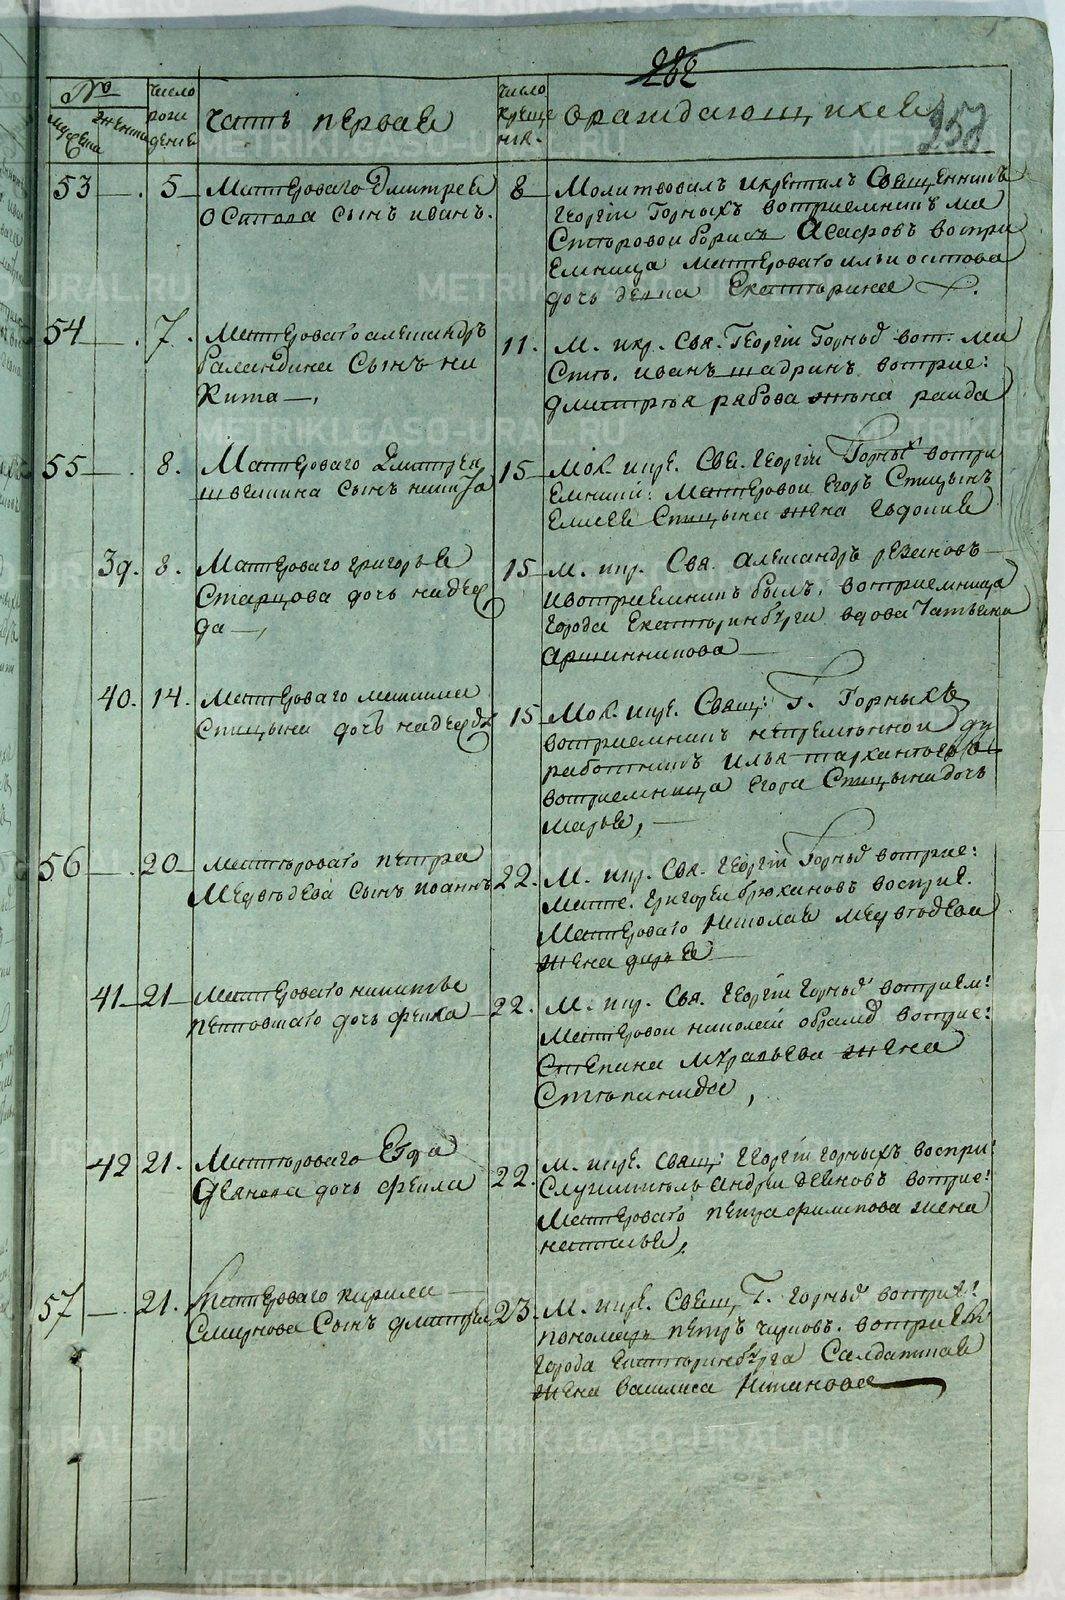 282
258
№
мужеска
женска
число рожденiе
часть первая
число крещенiя
о раждающихся
53 5 Мастероваго Дмитрея
Осипова сынъ иванъ.
8 Молитвовалъ и крестилъ Священникъ
Георгiи Горныхъ восприемникъ ма
стеровои борисъ Асафовъ воспри
емница мастероваго ильи осипова
дочь девка Екатерина
54 7. Мастероваго александръ
сынъ ни
кита
11. М. икр. Свя. Георгiи Горных восп. ма
стe. иванъ шадринъ восприе:
дмитрья рябова жена раида
55 8. Мастероваго Дмитрея
сынъ никита
15 Мол. икре. Свя. Георгiи Горных воспри
емники: Мастеровои Егоръ Спицынъ
Елисея Спицына жена Евдокия
39. 8. Мастероваго григорья
Старцова дочь надеж
да
15 М. икр. Свя. александръ резановъ
ивосприемникъ былъ, восприемница
города Екатеринбурга вдова Татьяна
аршинникова
40. 14. Мастероваго
Спицына дочь надежда
15 Мол. икре. Свящ: Г. Горныхъ
восприемникъ непременнои
работникъ илья
восприемница егора Спицына дочь
марья,
56 20 мастероваго петра
Медведева сынъ иоаннъ
22. М. икр. Свя. Георгiи Горных восприе:
масте. григореи брюхановъ восприе.
Мастероваго николая медведева
жена дарья
41 21 мастероваго никиты
дочь фекла
22. М. икр. Свя. Георгiи Горных восприем:
мастеровои николаи восприе:
Степана муравьева жена
Степанида,
42 21. Мастероваго
дочь фекла
22. М. икре. Свящ: Георгiи горныхъ воспри:
Служитель андреи восприе:
Мастероваго петра филипова жена
наталья,
57 21. Мастероваго кирила
Смирнова Сынъ дмитреи
23. М. икре. Свящ Г. Горных восприе:
пономарь петръ восприем
города екатеринбурга Салдатская
жена василиса
METRIKI.GASO-URAL.RU